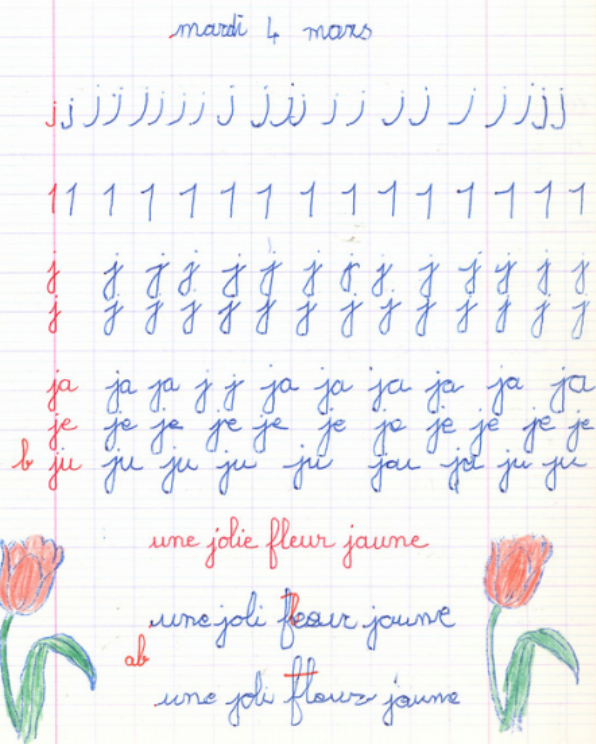 mardi 4 mars
j j j j j j j j j j j j j j j j j j j j j
1 1 1 1 1 1 1 1 1 1 1 1 1 1 1
j j j j j j j j j j j j j j
j j j j j j j j j j j j j j
ja ja ja j j ja ja ja ja ja ja
je je je je je je jo je je je je
b ju ju ju ju ju jau ju ju
une jolie fleur jaune
une joli jaune
ab
une joli flour jaune